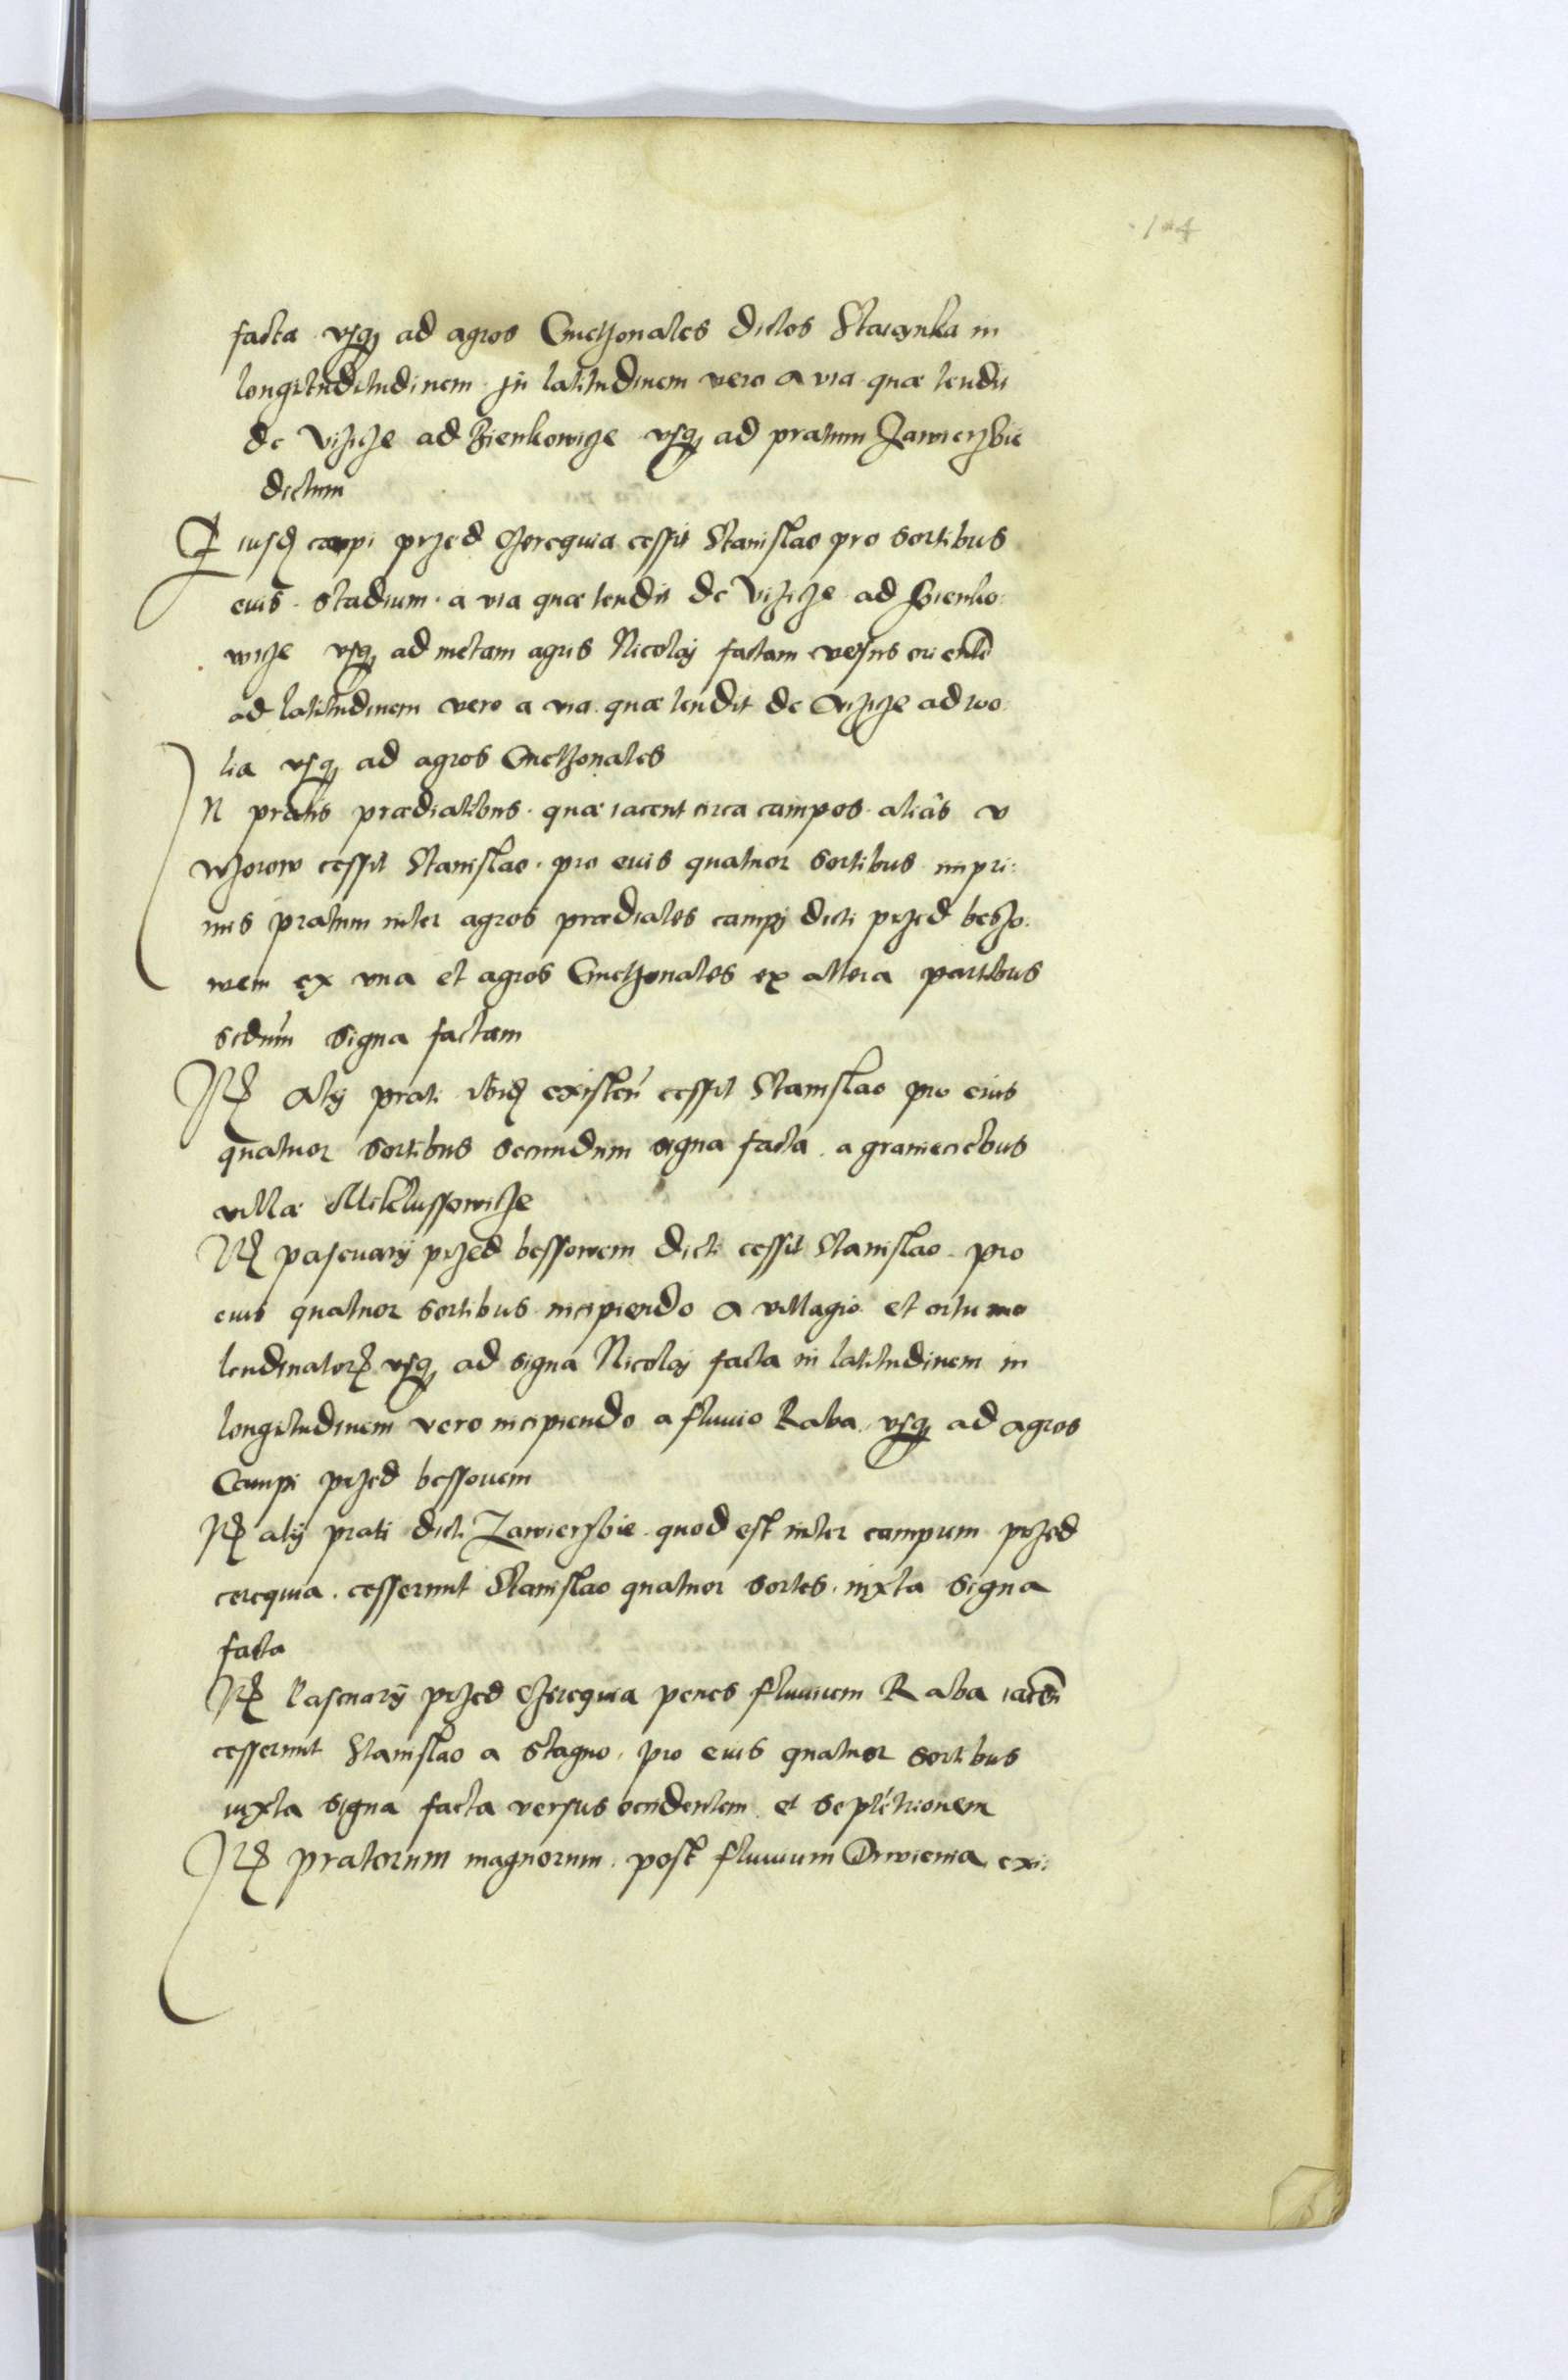 144
facta usq ad agros Cmethonales dictos Starzynka in
longitudtudinem. in latitudinem vero a via quae tendit
de Vizicze ad Bienkowicze usq ad pratum Zawierzbie
dictum
Eiusd campi przed Czerequia cessit Stanislao pro sortibus
euis. stadium. a via quae tendit de Vizicze ad Bienko:
wicze usq ad metam agris Nicolaj factam versus oriente
ad latitudinem vero a via quae tendit de Vizicze ad wo:
lia usq ad agros Cmethonales
In pratis praedialibus. quae iacent circa campos. alias v
wzorow cessit Stanislao. pro euis quatuor sortibus impri:
mis pratum inter agros praediales campi dicti przed beszo:
wem ex una et agros Cmethonales ex altera partibus
sedum signa factam
It alij prati ibid existen cessit Stanislao pro eius
quatuor sortibus secundum signa facta. a graniciebus
villae Miklussowicze
It pascuarij przed bessowem dicti cessit Stanislao. pro
euis quatuor sortibus incipiendo a villagio et ortu mo
lendinator usq ad signa Nicolaj facta in latitudinem in
longitudinem vero incipiendo a fluuio Raba. usq ad agros
Campi przed bessouem
It alij prati dicti Zawierzbie quod est inter campum przed
cerequia. cesserunt Stanislao quatuor sortes. iuxta signa
facta
It Pascuarij przed Czerequia penes fluuium Raba iacen
cesserunt Stanislao a stagno. pro euis quatuor sortibus
iuxta signa facta versus ocidentem et septetrionem
It pratorum magnorum. post fluuium Drwienia exi: